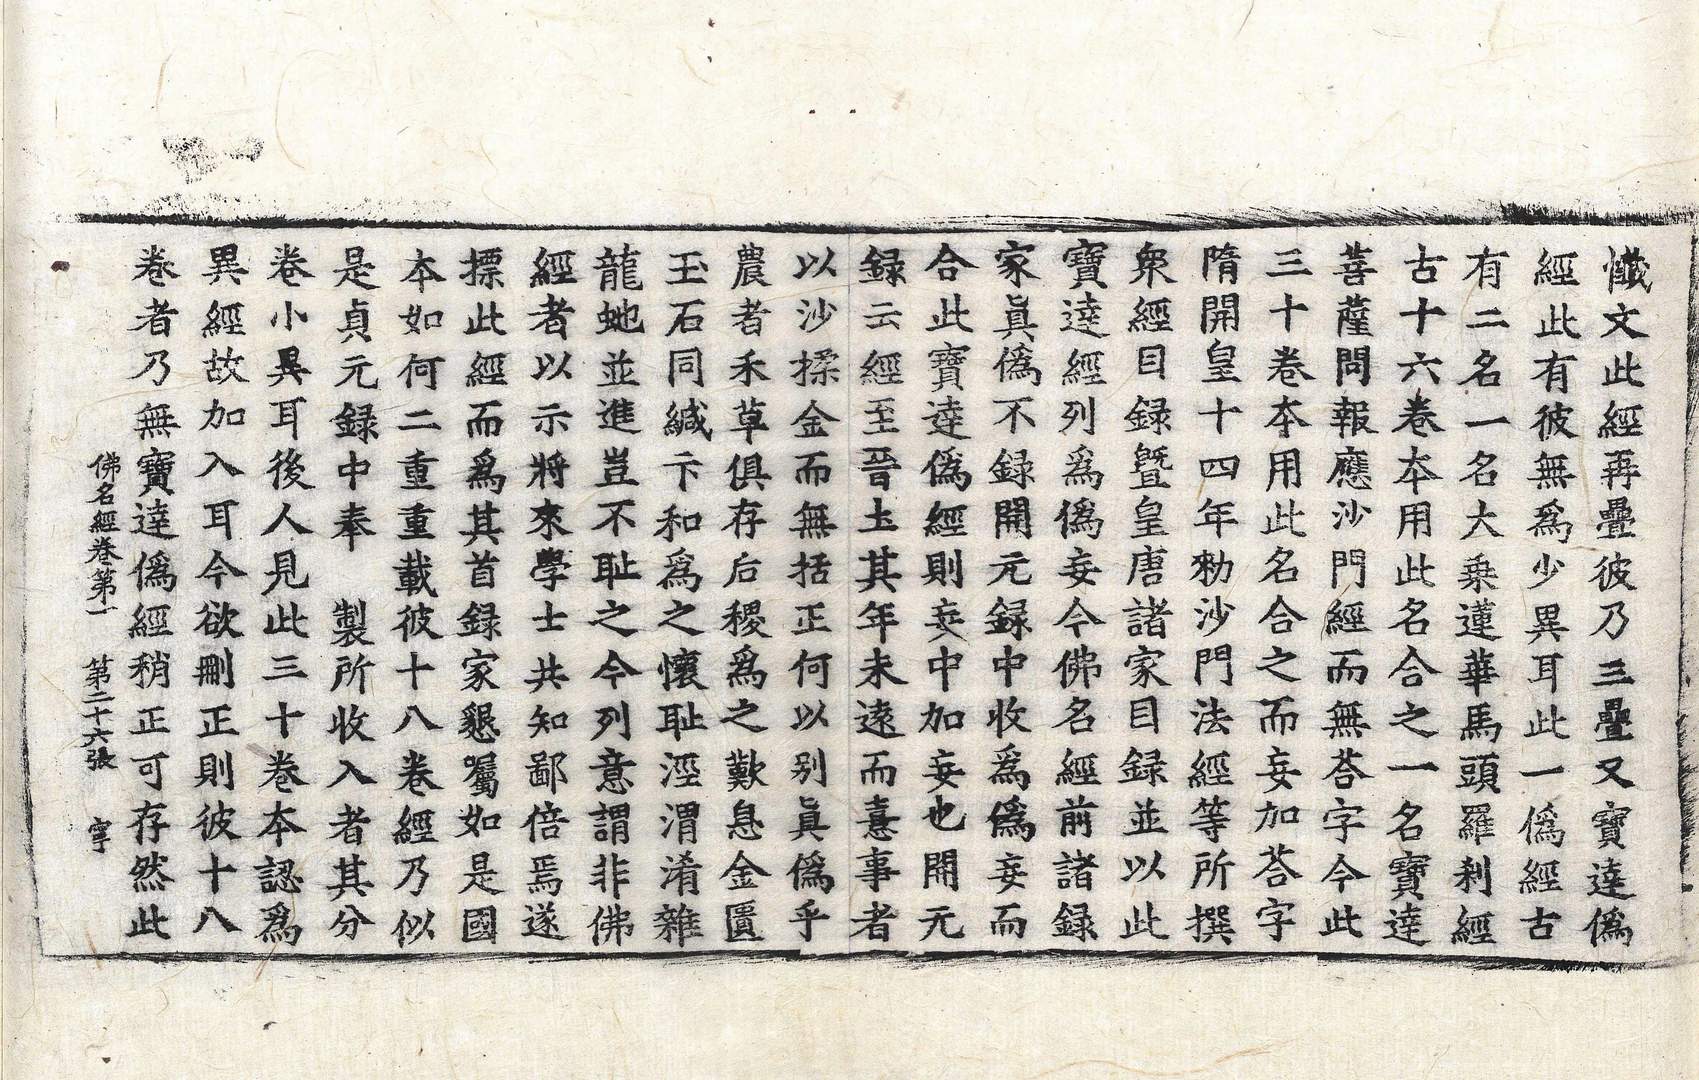 懺文此經再疊彼乃三疊又寶達僞
經此有彼無爲少異耳此一僞經古
有二名一名大乘蓮華馬頭羅刹經
古十六卷本用此名合之一名寶達
菩薩問報應沙門經而無荅字今此
三十卷本用此名合之而妄加荅字
隋開皇十四年勑沙門法經等所撰
衆經目録曁皇唐諸家目録並以此
寶達經列爲僞妄今佛名經前諸録
家眞僞不録開元録中收爲僞妄而
合此寶達僞經則妄中加妄也開元
録云經至晉土其年未遠而憙事者
以沙揉金而無括正何以别眞僞乎
農者禾草俱存后稷爲之歎息金匱
玉石同緘卞和爲之懷耻涇渭淆雜
龍虵並進豈不耻之今列意謂非佛
經者以示將來學士共知鄙倍焉遂
摽此經而爲其首録家懇囑如是國
本如何二重重載彼十八卷經乃似
是貞元録中奉　製所收入者其分
卷小異耳後人見此三十卷本認爲
異經故加入耳今欲刪正則彼十八
卷者乃無寶達僞經稍正可存然此
佛名經卷第一　第二十六張　寧